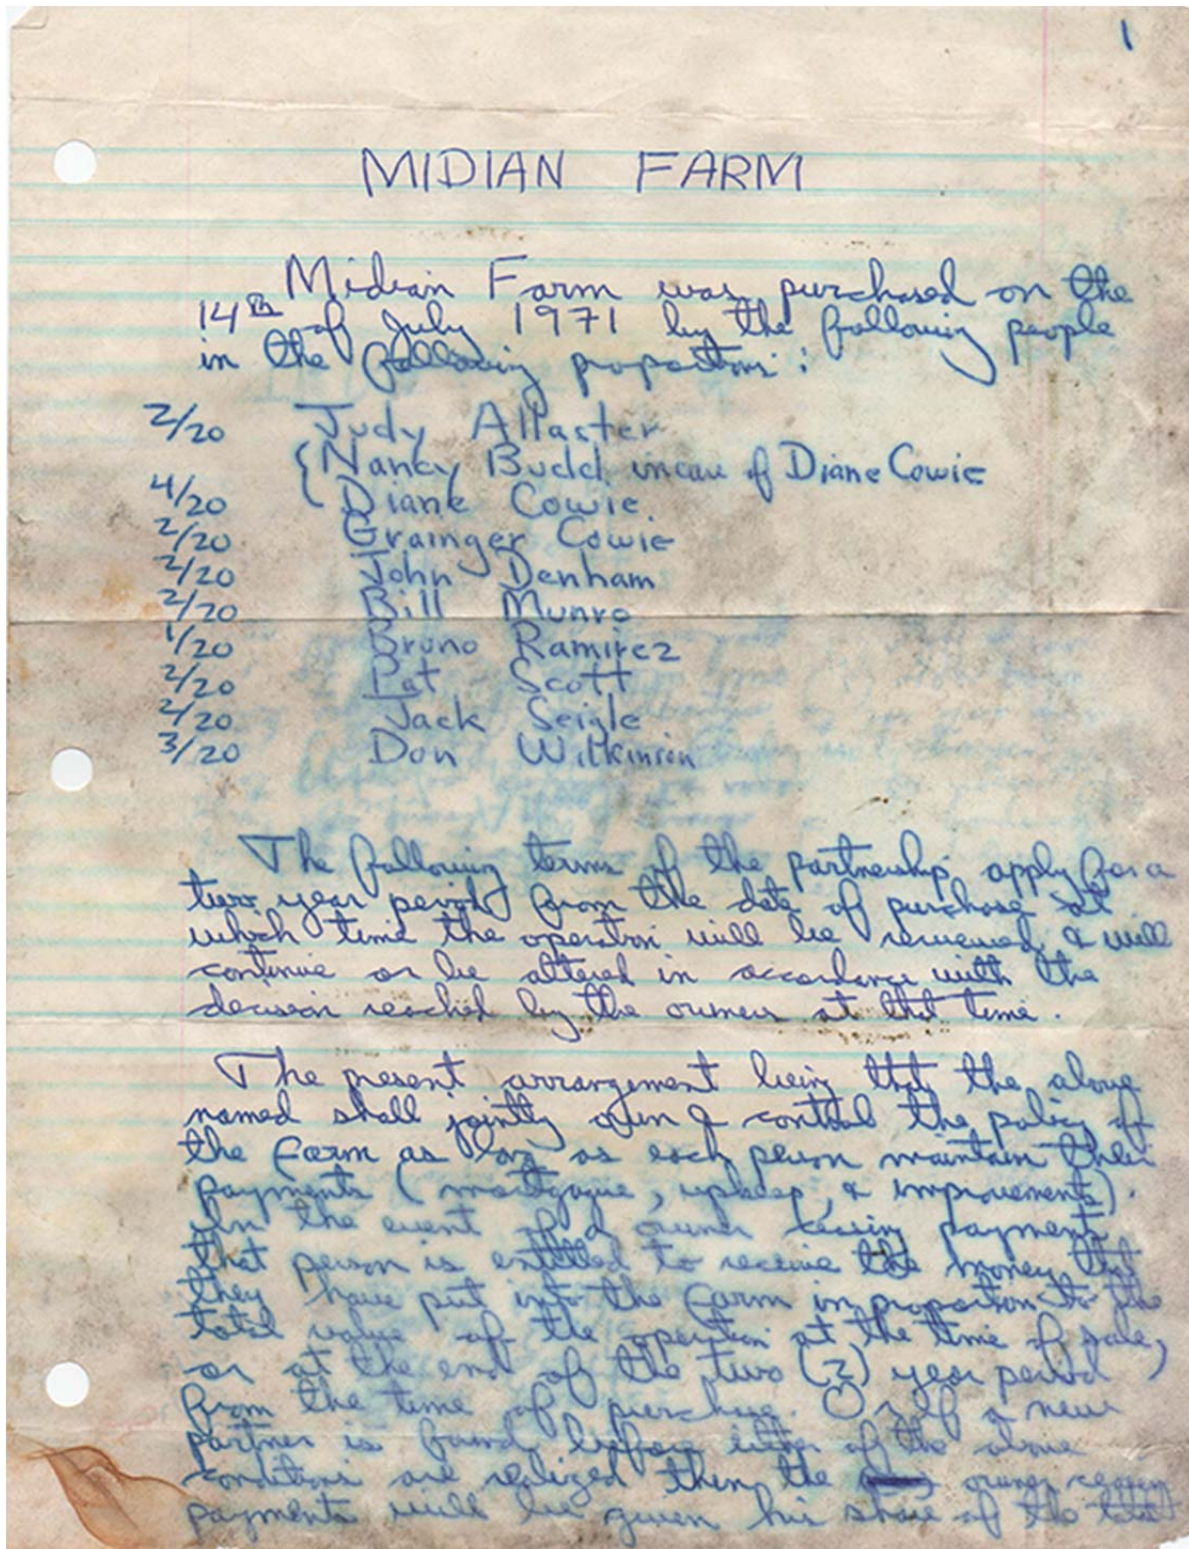 1
MIDIAN FARM
Midian Farm was purchased on the
14th of July 1971 by the following people
in the following proportions :
2/20 Judy Allaster
{ Nancy Budd in care of Diane Cowie
4/20 Diane Cowie
2/20 Grainger Cowie
2/20 John Denham
2/20 Bill Munro
1/20 Bruno Ramirez
2/20 Pat Scott
2/20 Jack Seigle
3/20 Don Wilkinson
The following terms of the partnership apply for a
two year period from the date of purchase at
which time the operation will be reviewed & will
continue or be altered in accordance with the
decision reached by the owners at that time.
The present arrangement being that the above
named shall jointly own & control the policy of
the farm as long as each person maintain their
payments (mortgague, upkeep, & improvements).
In the event of a owner ceasing payment
that person is entitled to receive the money that
they have put into the farm in proportion to the
total value of the operation at the time of sale,
or at the end of the two (2) year period
from the time of purchase. Or if a new
partner is found before either of the above
conditions are realized then the owner ceasing
payments will be given his share of the total